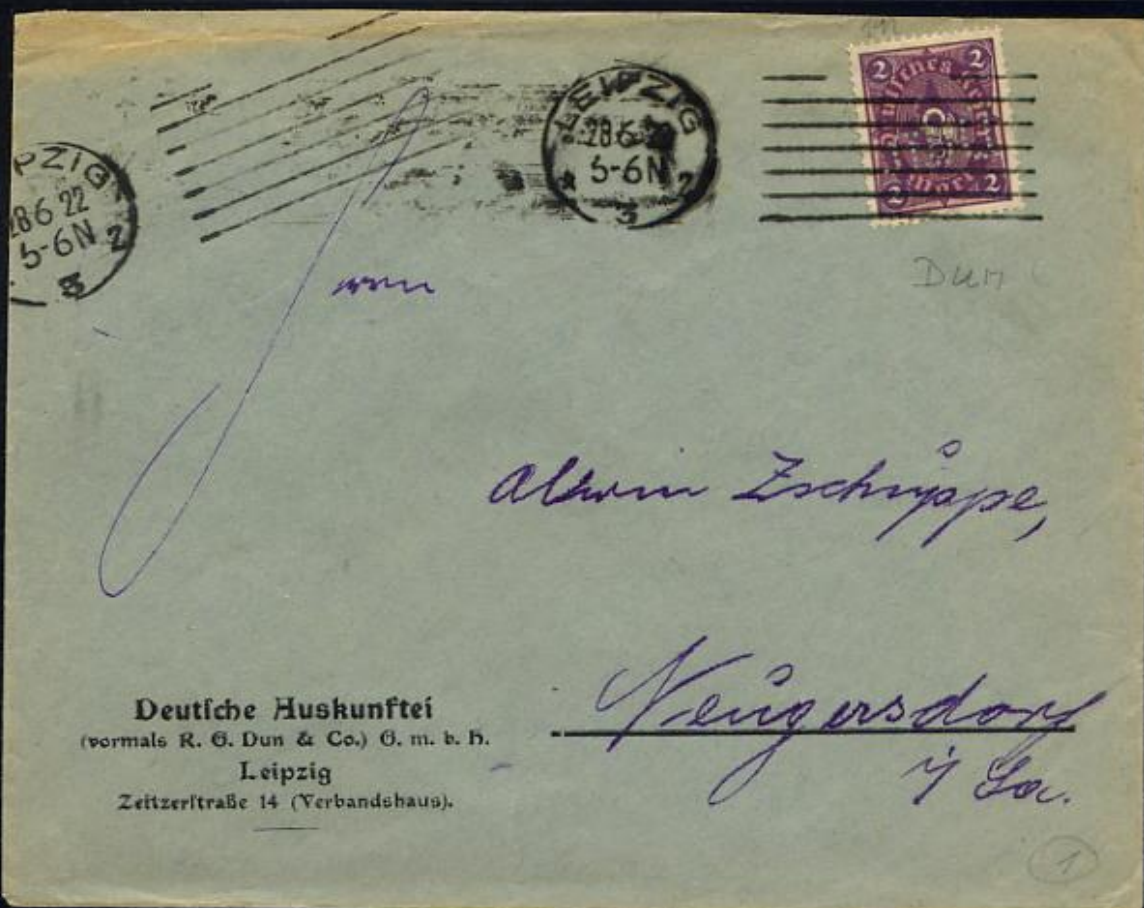 LEIPZIG
28.6.22
5-6N
* 3 2
PZIG
28 6 22
5-6N 2
3
2 2
Deutsches Reich
2 Mark 2
Dun
Herrn
Alwin Zschuppe,
Neugersdorf
i/ Sa.
Deutſche Auskunftei
(vormals R. G. Dun & Co.) G. m. b. H.
Leipzig
Zeitzerſtraße 14 (Verbandshaus).
1